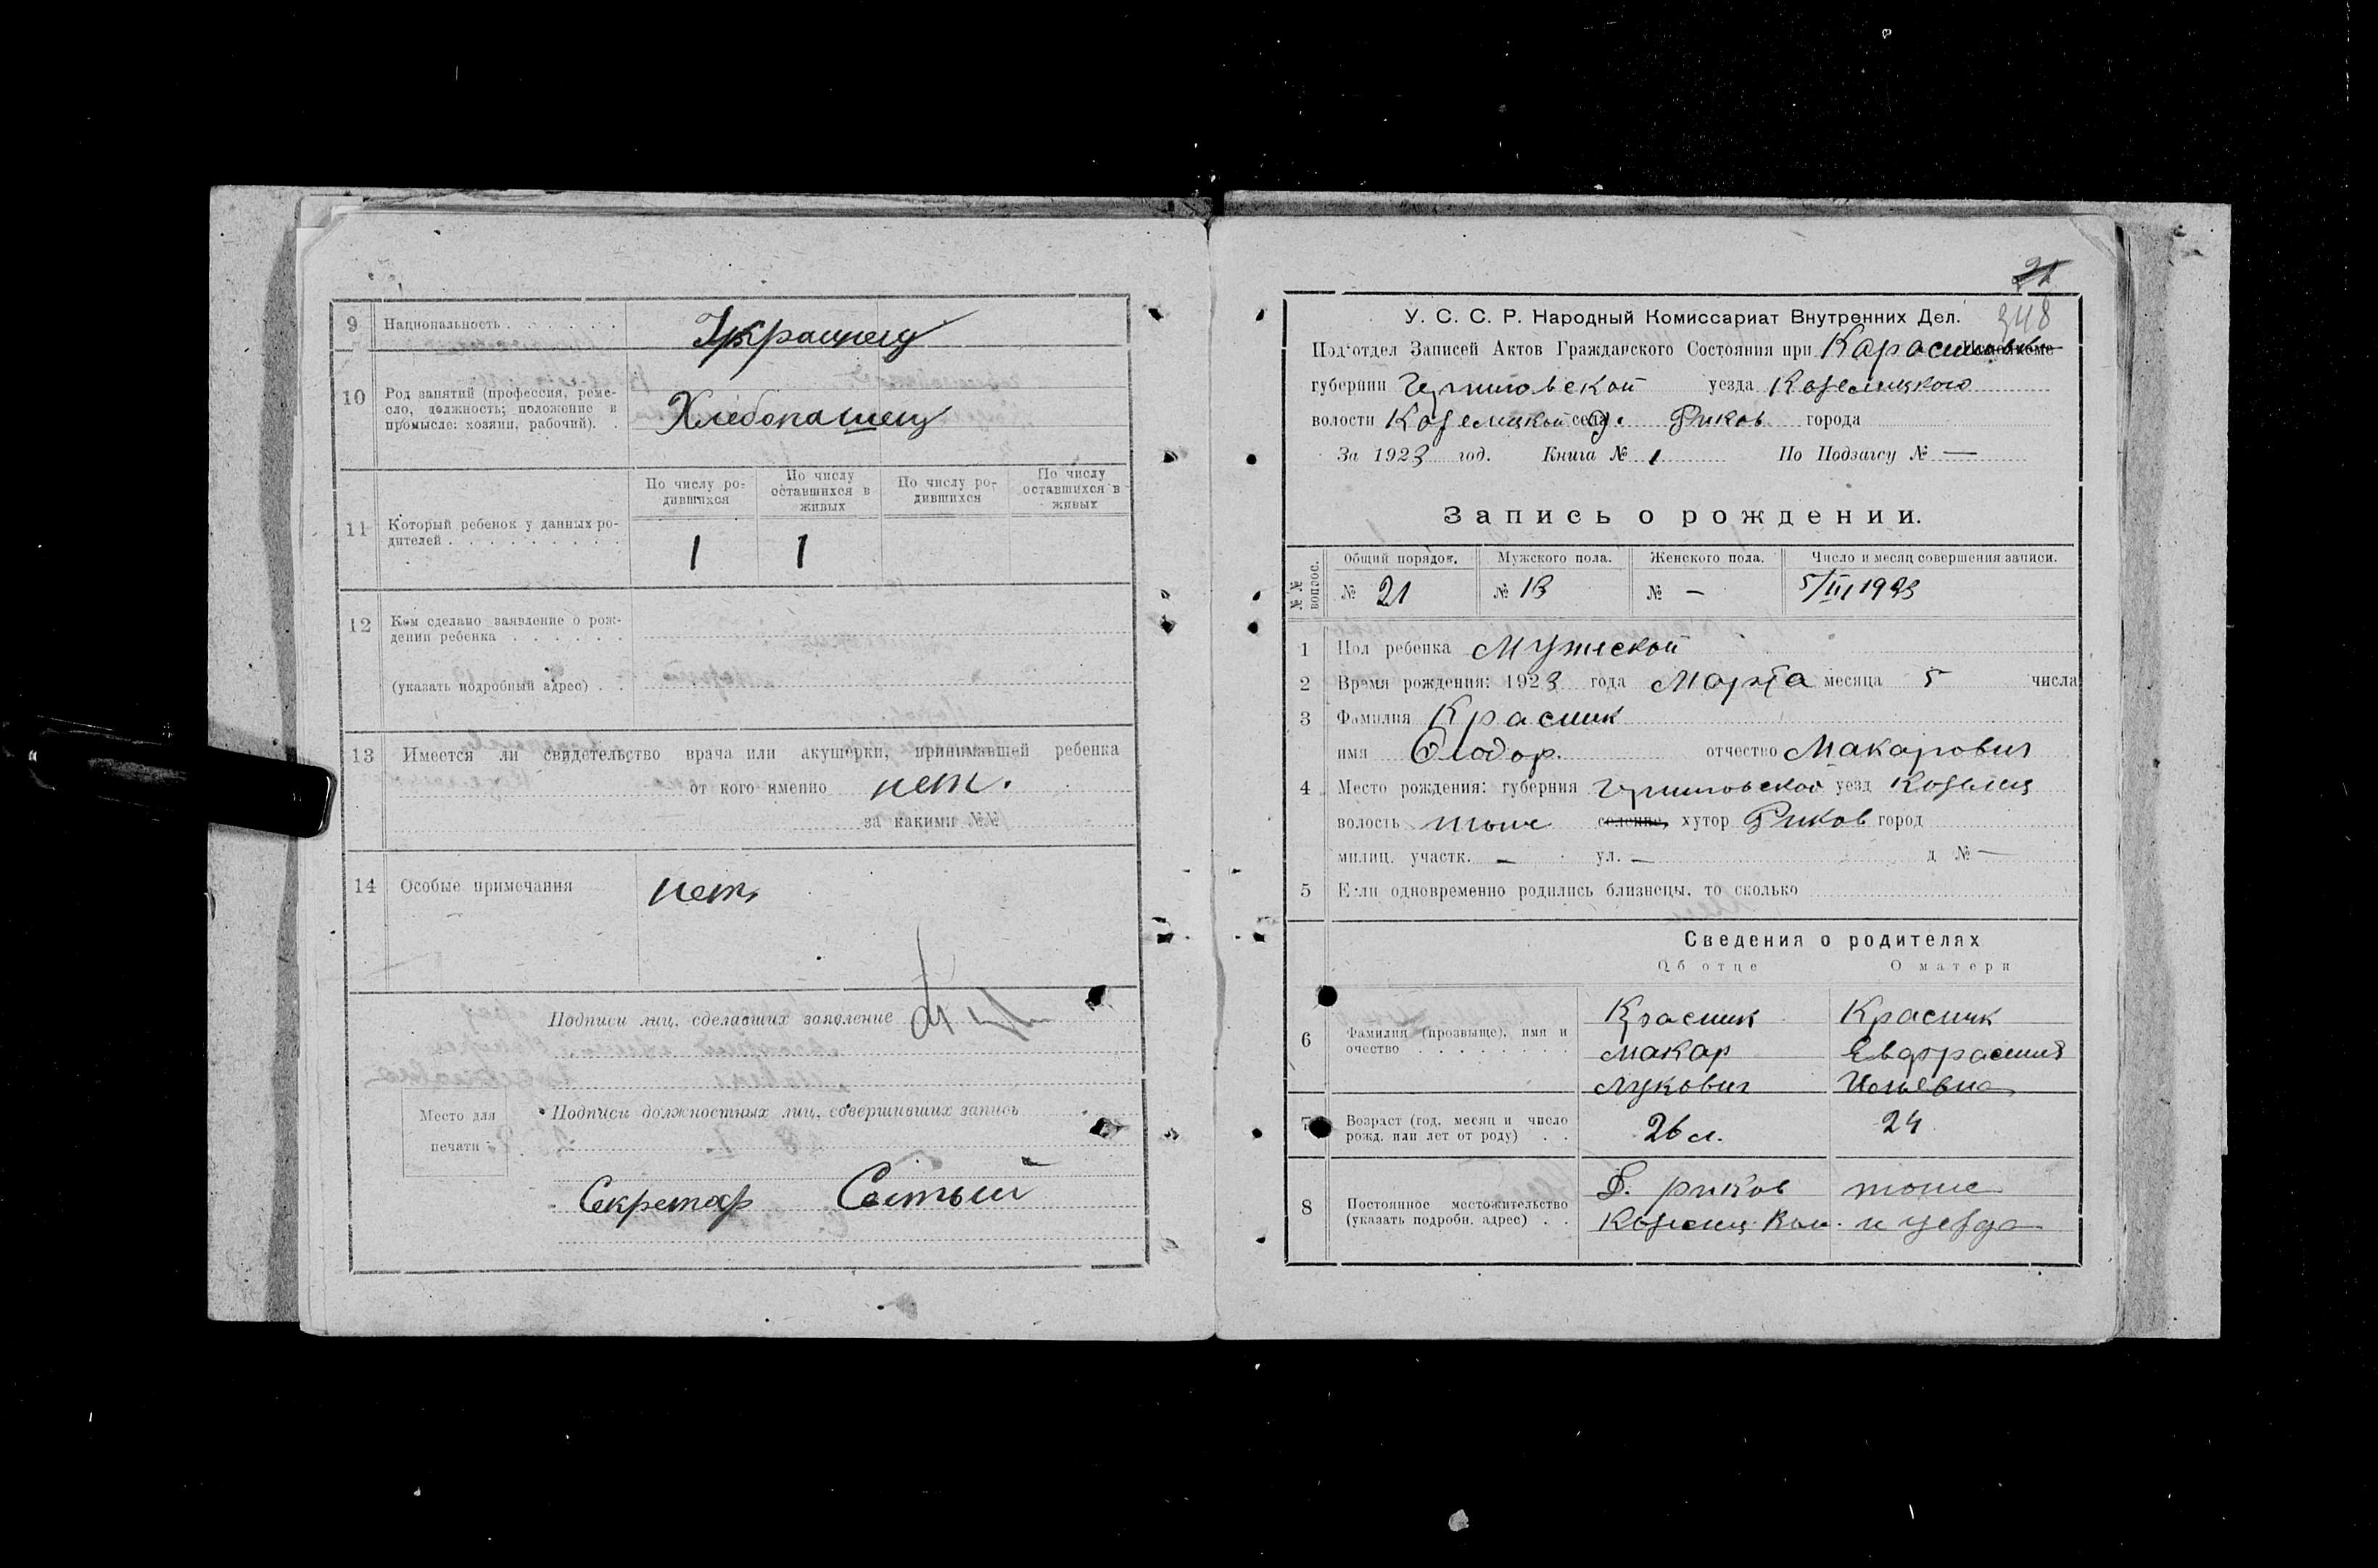 9 Национальность . . . . . . . Украинец
10 Род занятий (профессия, реме-
сло, должность; положение в
промысле: хозяин, рабочий). .
Хлебопашец
11 Который ребенок у данных ро-
дителей . . . . . . . . .
По числу ро-
дившихся
По числу
оставшихся в
живых
По числу ро-
дившихся
По числу
оставшихся в
живых
1 1
12 Кем сделано заявление о рож-
дении ребенка . . . . . .
(указать подробный адрес) . .
13 Имеется ли свидетельство врача или акушерки, принимавшей ребенка
от кого именно нет.
за какими №№
14 Особые примечания нет
Подписи лиц, сделавших заявление
Место для
печати
Подписи должностных лиц, совершивших запись
Секретар
21
348
У. С. С. Р. Народный Комиссариат Внутренних Дел.
Под‘отдел Записей Актов Гражданского Состояния при Исполкоме
губернии Черниговской уезда Козелецкого
волости Козелецкой села города
За 1923 год. Книга № 1 По Подзагсу № —
Запись о рождении.
№ № вопрос.
Общий порядок. Мужского пола. Женского пола. Число и месяц совершения записи.
№ 21 № 13 № — 5/III 1923
1 Пол ребенка Мужеской
2 Время рождения: 1923 года Марта месяца 5 числа
3 Фамилия Красник
имя отчество Макарович
4 Место рождения: губерния Черниговской уезд Козелец
волость тоже селение, хутор Риков город
милиц. участк. — ул. — д № —
5 Если одновременно родились близнецы, то сколько
Сведения о родителях
Об отце О матери
6 Фамилия (прозвыще), имя и
очество . . . . . . . .
Красник Красник
Макар Евфрасиния
Лукович Ильевна
7 Возраст (год, месяц и число
рожд. или лет от роду) . .
26 л. 24
8 Постоянное местожительство
(указать подробн. адрес) . .
риков тоже
Козелец. Вол. и уезда